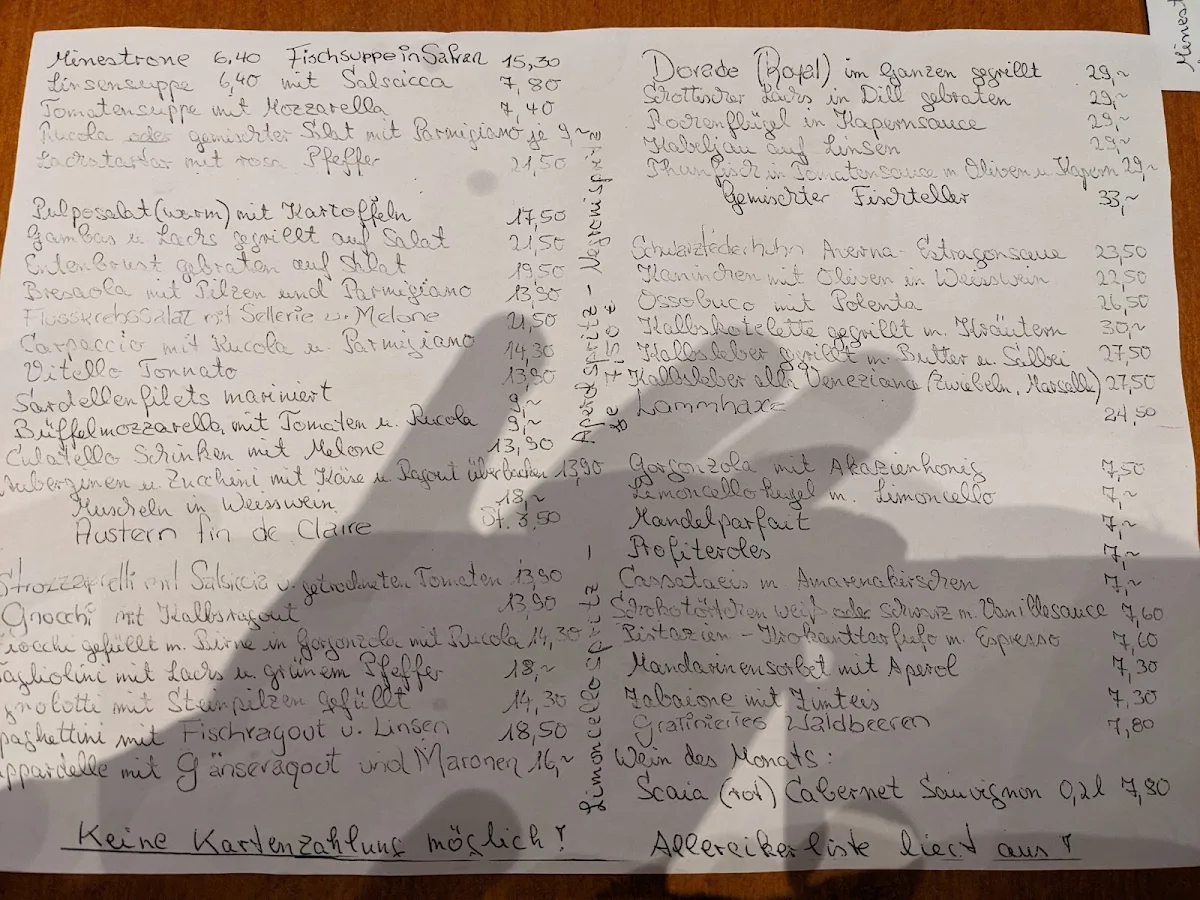 Minestrone 6,40 Fischsuppe in Safran 15,30
Linsensuppe 6,40 mit Salsicca 7,80
Tomatensuppe mit Mozzarella 7,40
Rucola oder gemischter Salat mit Parmigiano je 9,~
Lachstartar mit rosa Pfeffer 21,50
Pulposalat (warm) mit Kartoffeln 17,50
Gambas u. Lachs gegrillt auf Salat 21,50
Entenbrust gebraten auf Salat 19,50
Bresaola mit Pilzen und Parmigiano 13,90
Flusskrebssalat mit Sellerie u. Melone 21,50
Carpaccio mit Rucola u. Parmigiano 14,30
Vitello Tonnato 13,90
Sardellenfilets mariniert 9,~
Büffelmozzarella mit Tomaten u. Rucola 9,~
Culatello Schinken mit Melone 13,90
Auberginen u. Zucchini mit Käse u. Ragout überbacken 13,90
Muscheln in Weisswein 18,~
Austern fin de Claire St. 3,50
Strozzaprelli mit Salsiccia u. getrockneten Tomaten 13,90
Gnocchi mit Kalbsragout 13,90
iocchi gefüllt m. Birne in Gorgonzola mit Rucola 14,30
agliolini mit Lachs u. grünem Pfeffer 18,~
gnolotti mit Steinpilzen gefüllt 14,30
paghettini mit Fischragout u. Linsen 18,50
ppardelle mit Gänseragoot und Maronen 16,~
Keine Kartenzahlung möglich!
Limoncellospritz - Aperolspritz - Negronispritz
je 7,50 €
Dorade (Royal) im Ganzen gegrillt 29,~
Schottischer Lachs in Dill gebraten 29,~
Rochenflügel in Kapernsauce 29,~
Kabeljau auf Linsen 29,~
Thunfisch in Tomatensauce m Oliven u Kapern 29,~
Gemischter Fischteller 33,~
Schwarzfederhuhn Averna-Estragonsaue 23,50
Kaninchen mit Oliven in Weisswein 22,50
Ossobuco mit Polenta 26,50
Kalbskotelette gegrillt m. Kräutern 30,~
Kalbsleber gegrillt m. Butter u. Salbei 27,50
Kalbsleber alla Veneziana (Zwiebeln, Marsalla) 27,50
Lammhaxe 24,50
Gorgonzola mit Akazienhonig 7,50
Limoncellokugel m. Limoncello 7,~
Mandelparfait 7,~
Profiteroles 7,~
Cassataeis m. Amarenakirschen 7,~
Schokotörtchen weiß oder schwarz m. Vanillesauce 7,60
Pistazien-Krokanttarfufo m. Espresso 7,60
Mandarinensorbet mit Aperol 7,30
Zabaione mit Zimteis 7,30
Gratiniertes Waldbeeren 7,80
Wein des Monats:
Scaia (rot) Cabernet Sauvignon 0,2l 7,80
liegt aus!